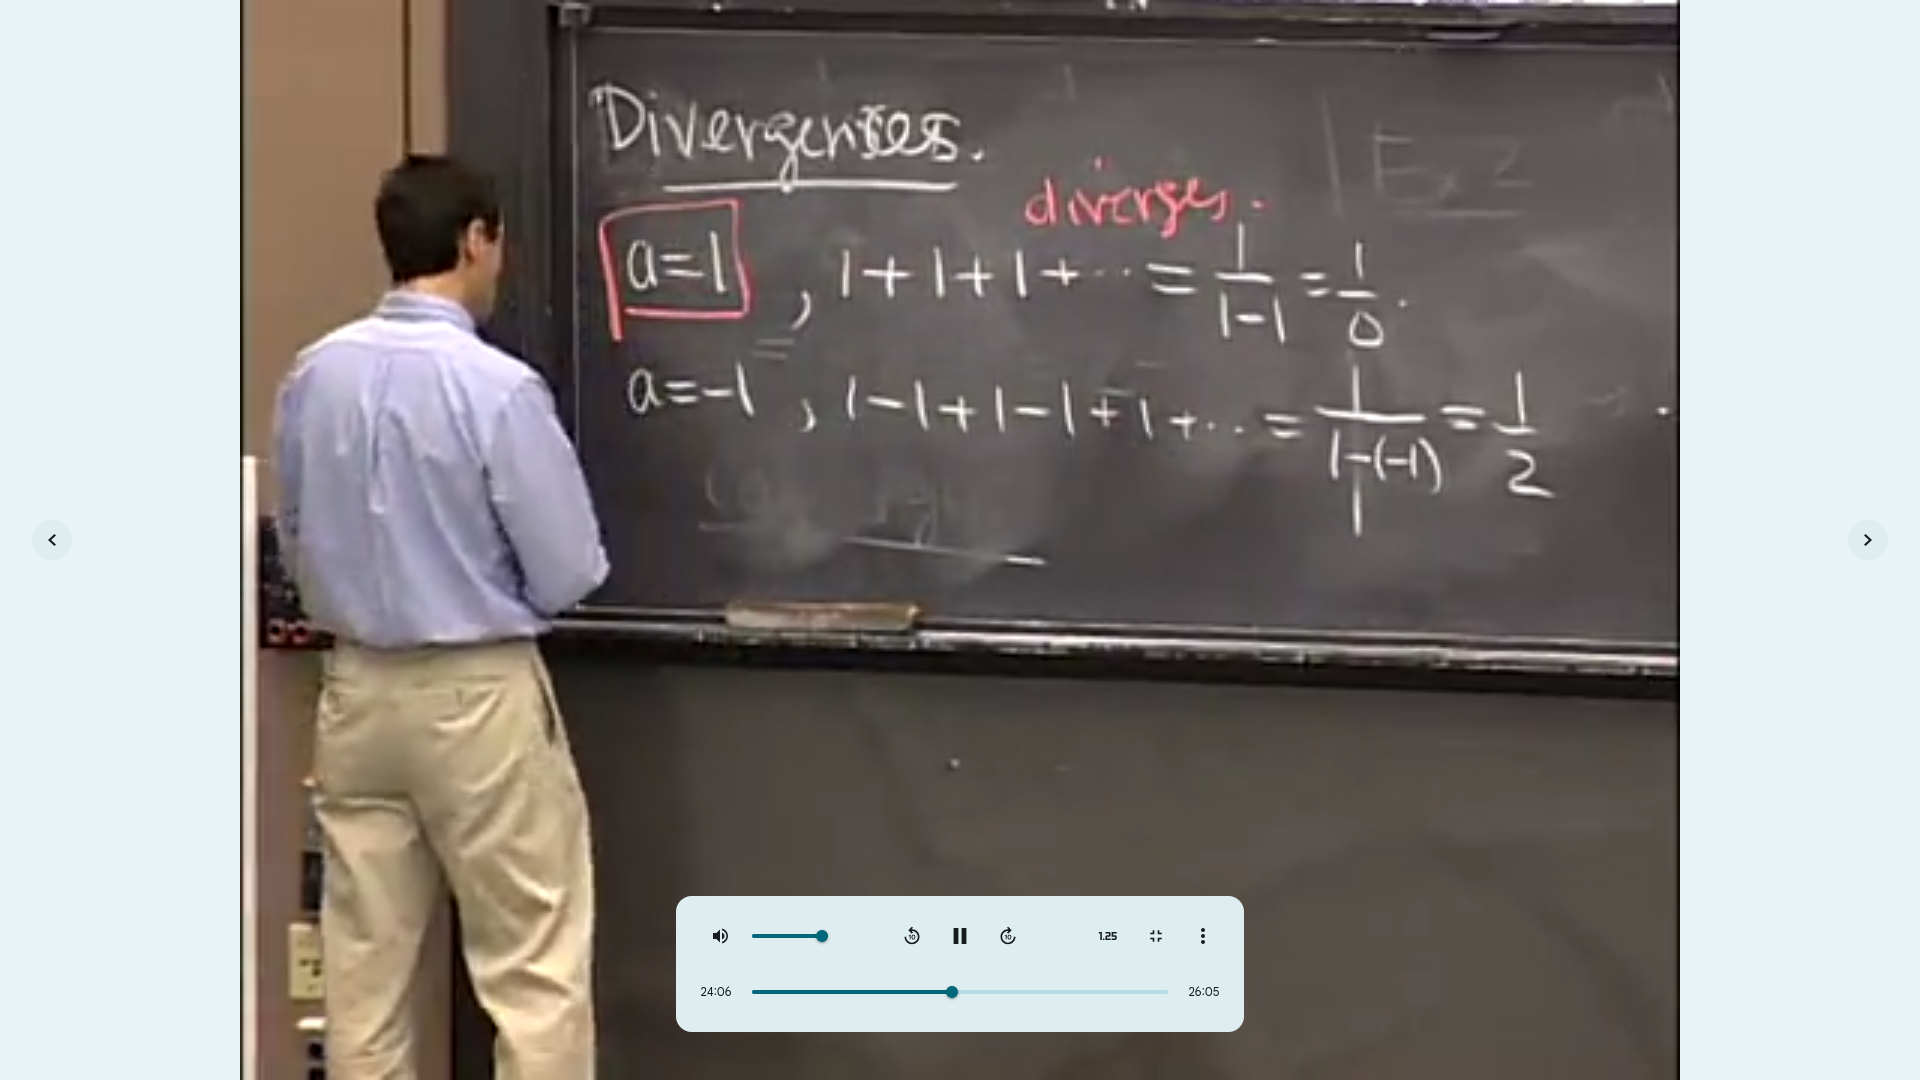 Divergences.
diverges.
a=1 , 1+1+1+··· = 1/(1-1) = 1/0.
a=-1 , 1-1+1-1+1+··· = 1/(1-(-1)) = 1/2
Ex 2
1.25
24:06
26:05